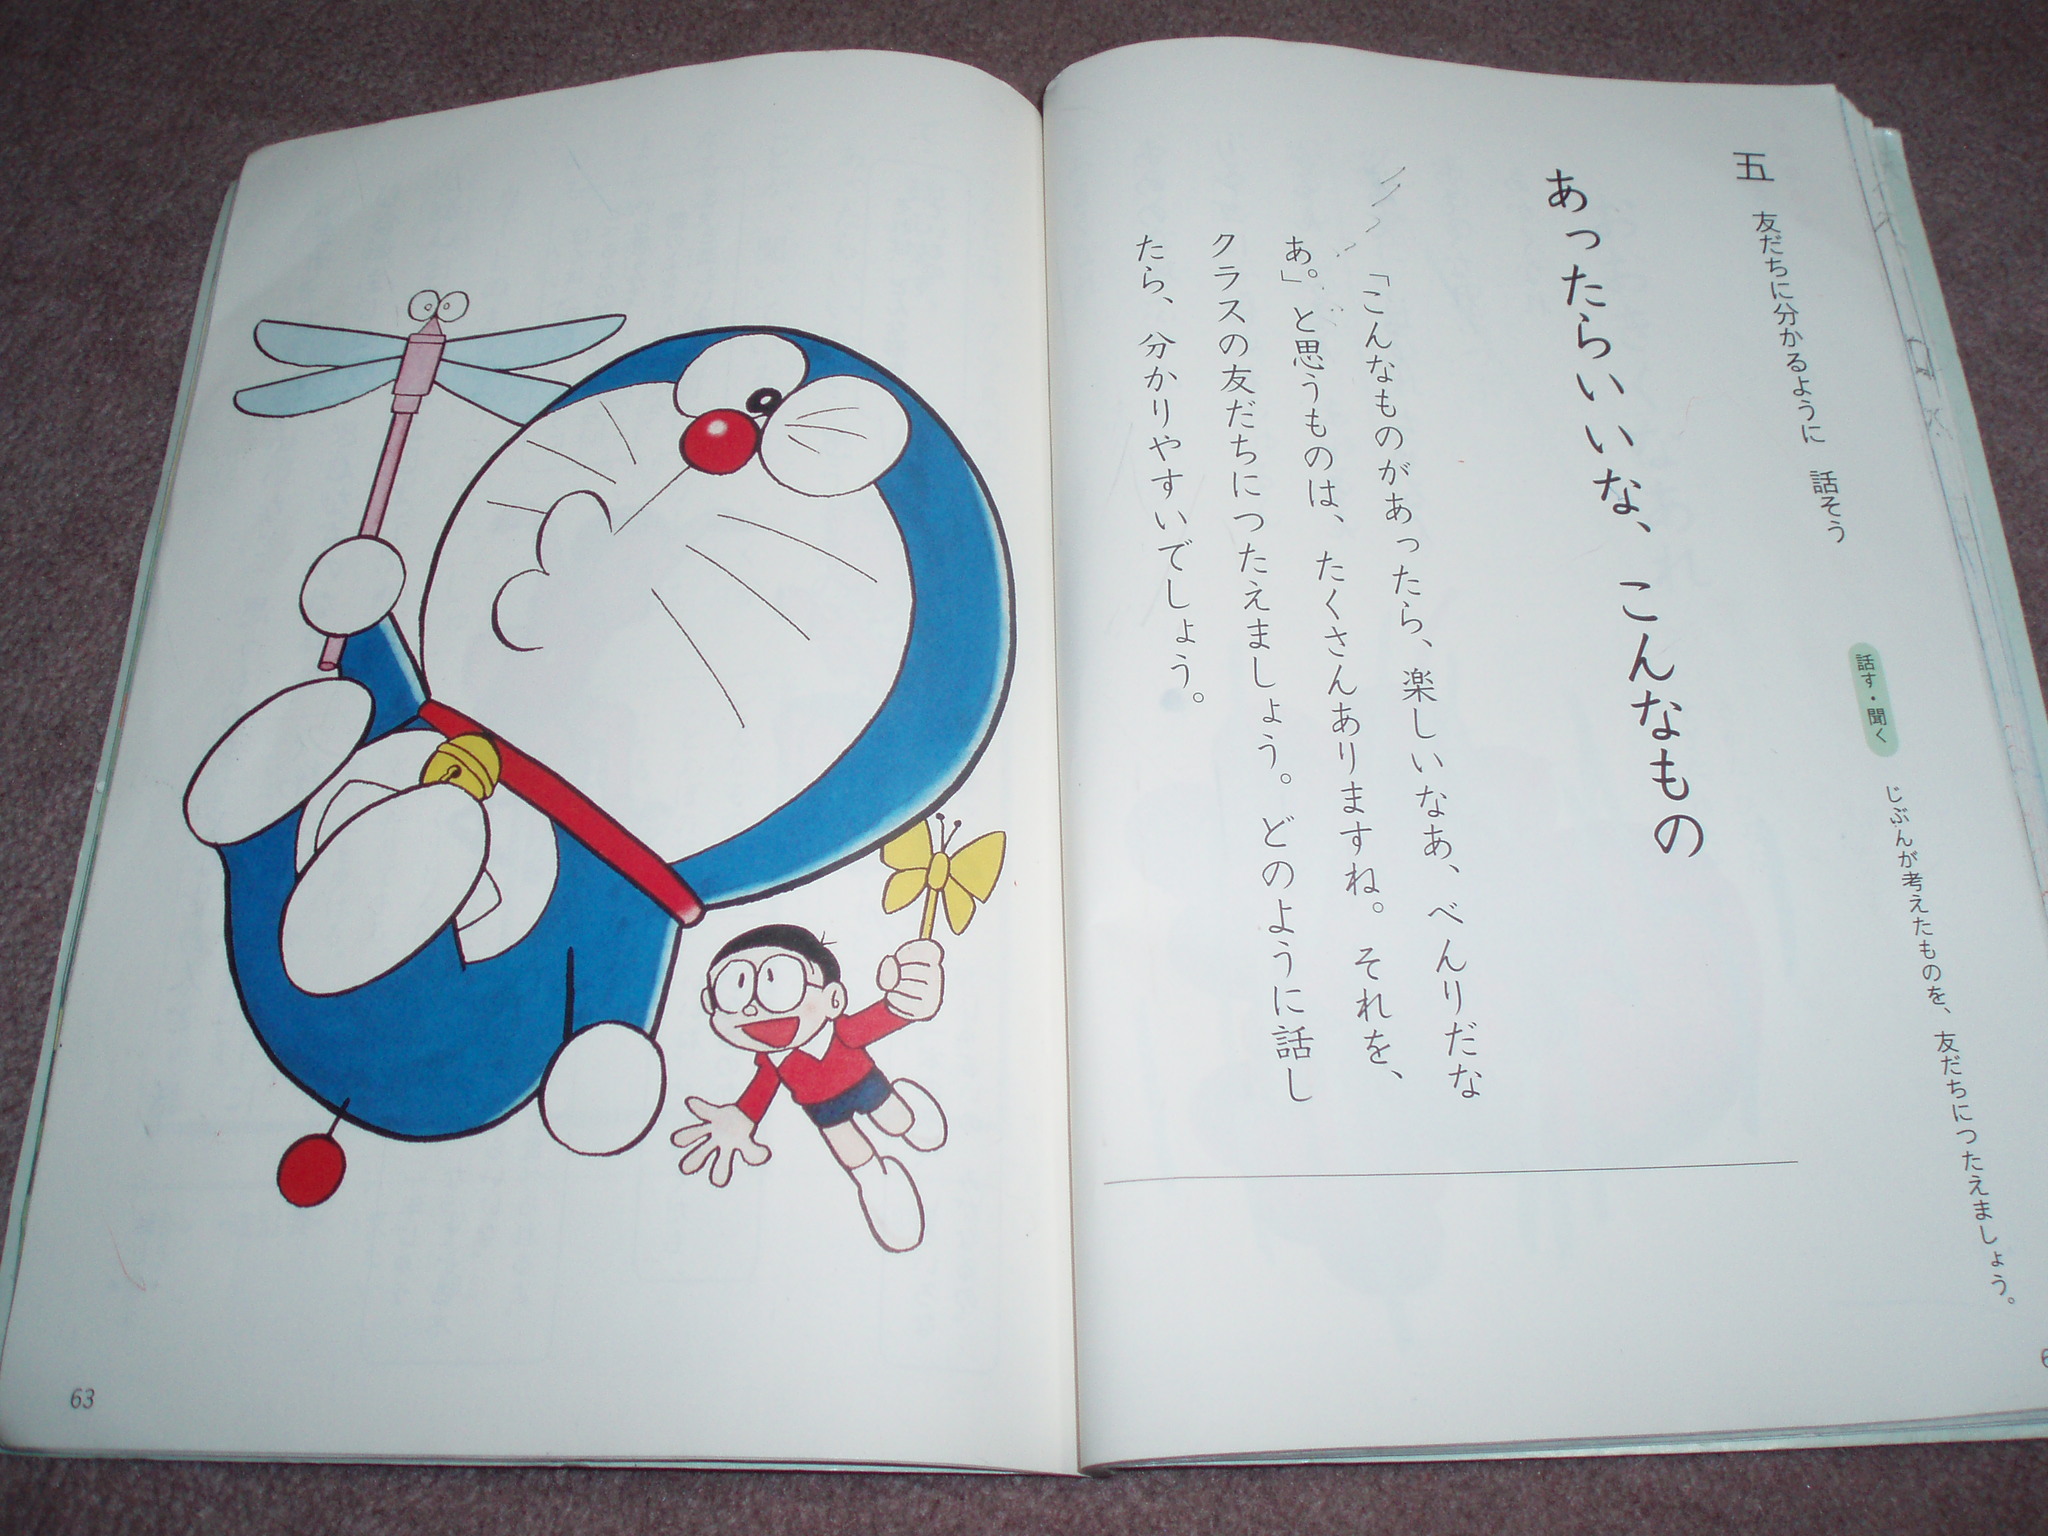 五 友だちに分かるように 話そう
あったらいいな、こんなもの
話す・聞く じぶんが考えたものを、友だちにつたえましょう。
「こんなものがあったら、楽しいなあ、べんりだな
あ。」と思うものは、たくさんありますね。それを、
クラスの友だちにつたえましょう。どのように話し
たら、分かりやすいでしょう。
63